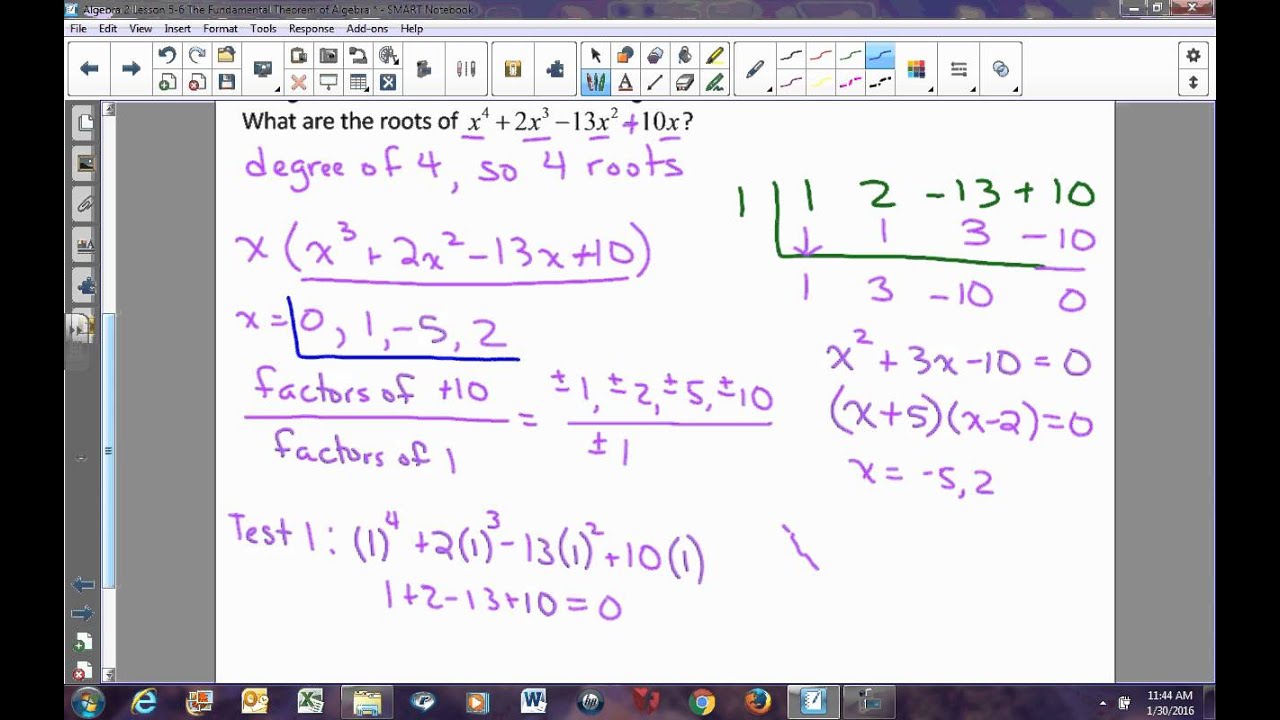 Algebra 2 Lesson 5-6 The Fundamental Theorem of Algebra * - SMART Notebook
File Edit View Insert Format Tools Response Add-ons Help
What are the roots of x⁴ + 2x³ − 13x² + 10x?
degree of 4, so 4 roots
x (x³ + 2x² − 13x + 10)
x = 0, 1, −5, 2
factors of +10 / factors of 1 = ±1, ±2, ±5, ±10 / ±1
Test 1: (1)⁴ + 2(1)³ − 13(1)² + 10(1)
1 + 2 − 13 + 10 = 0
1 | 1 2 −13 + 10
↓ 1 3 −10
1 3 −10 0
x² + 3x − 10 = 0
(x+5)(x−2) = 0
x = −5, 2
11:44 AM
1/30/2016